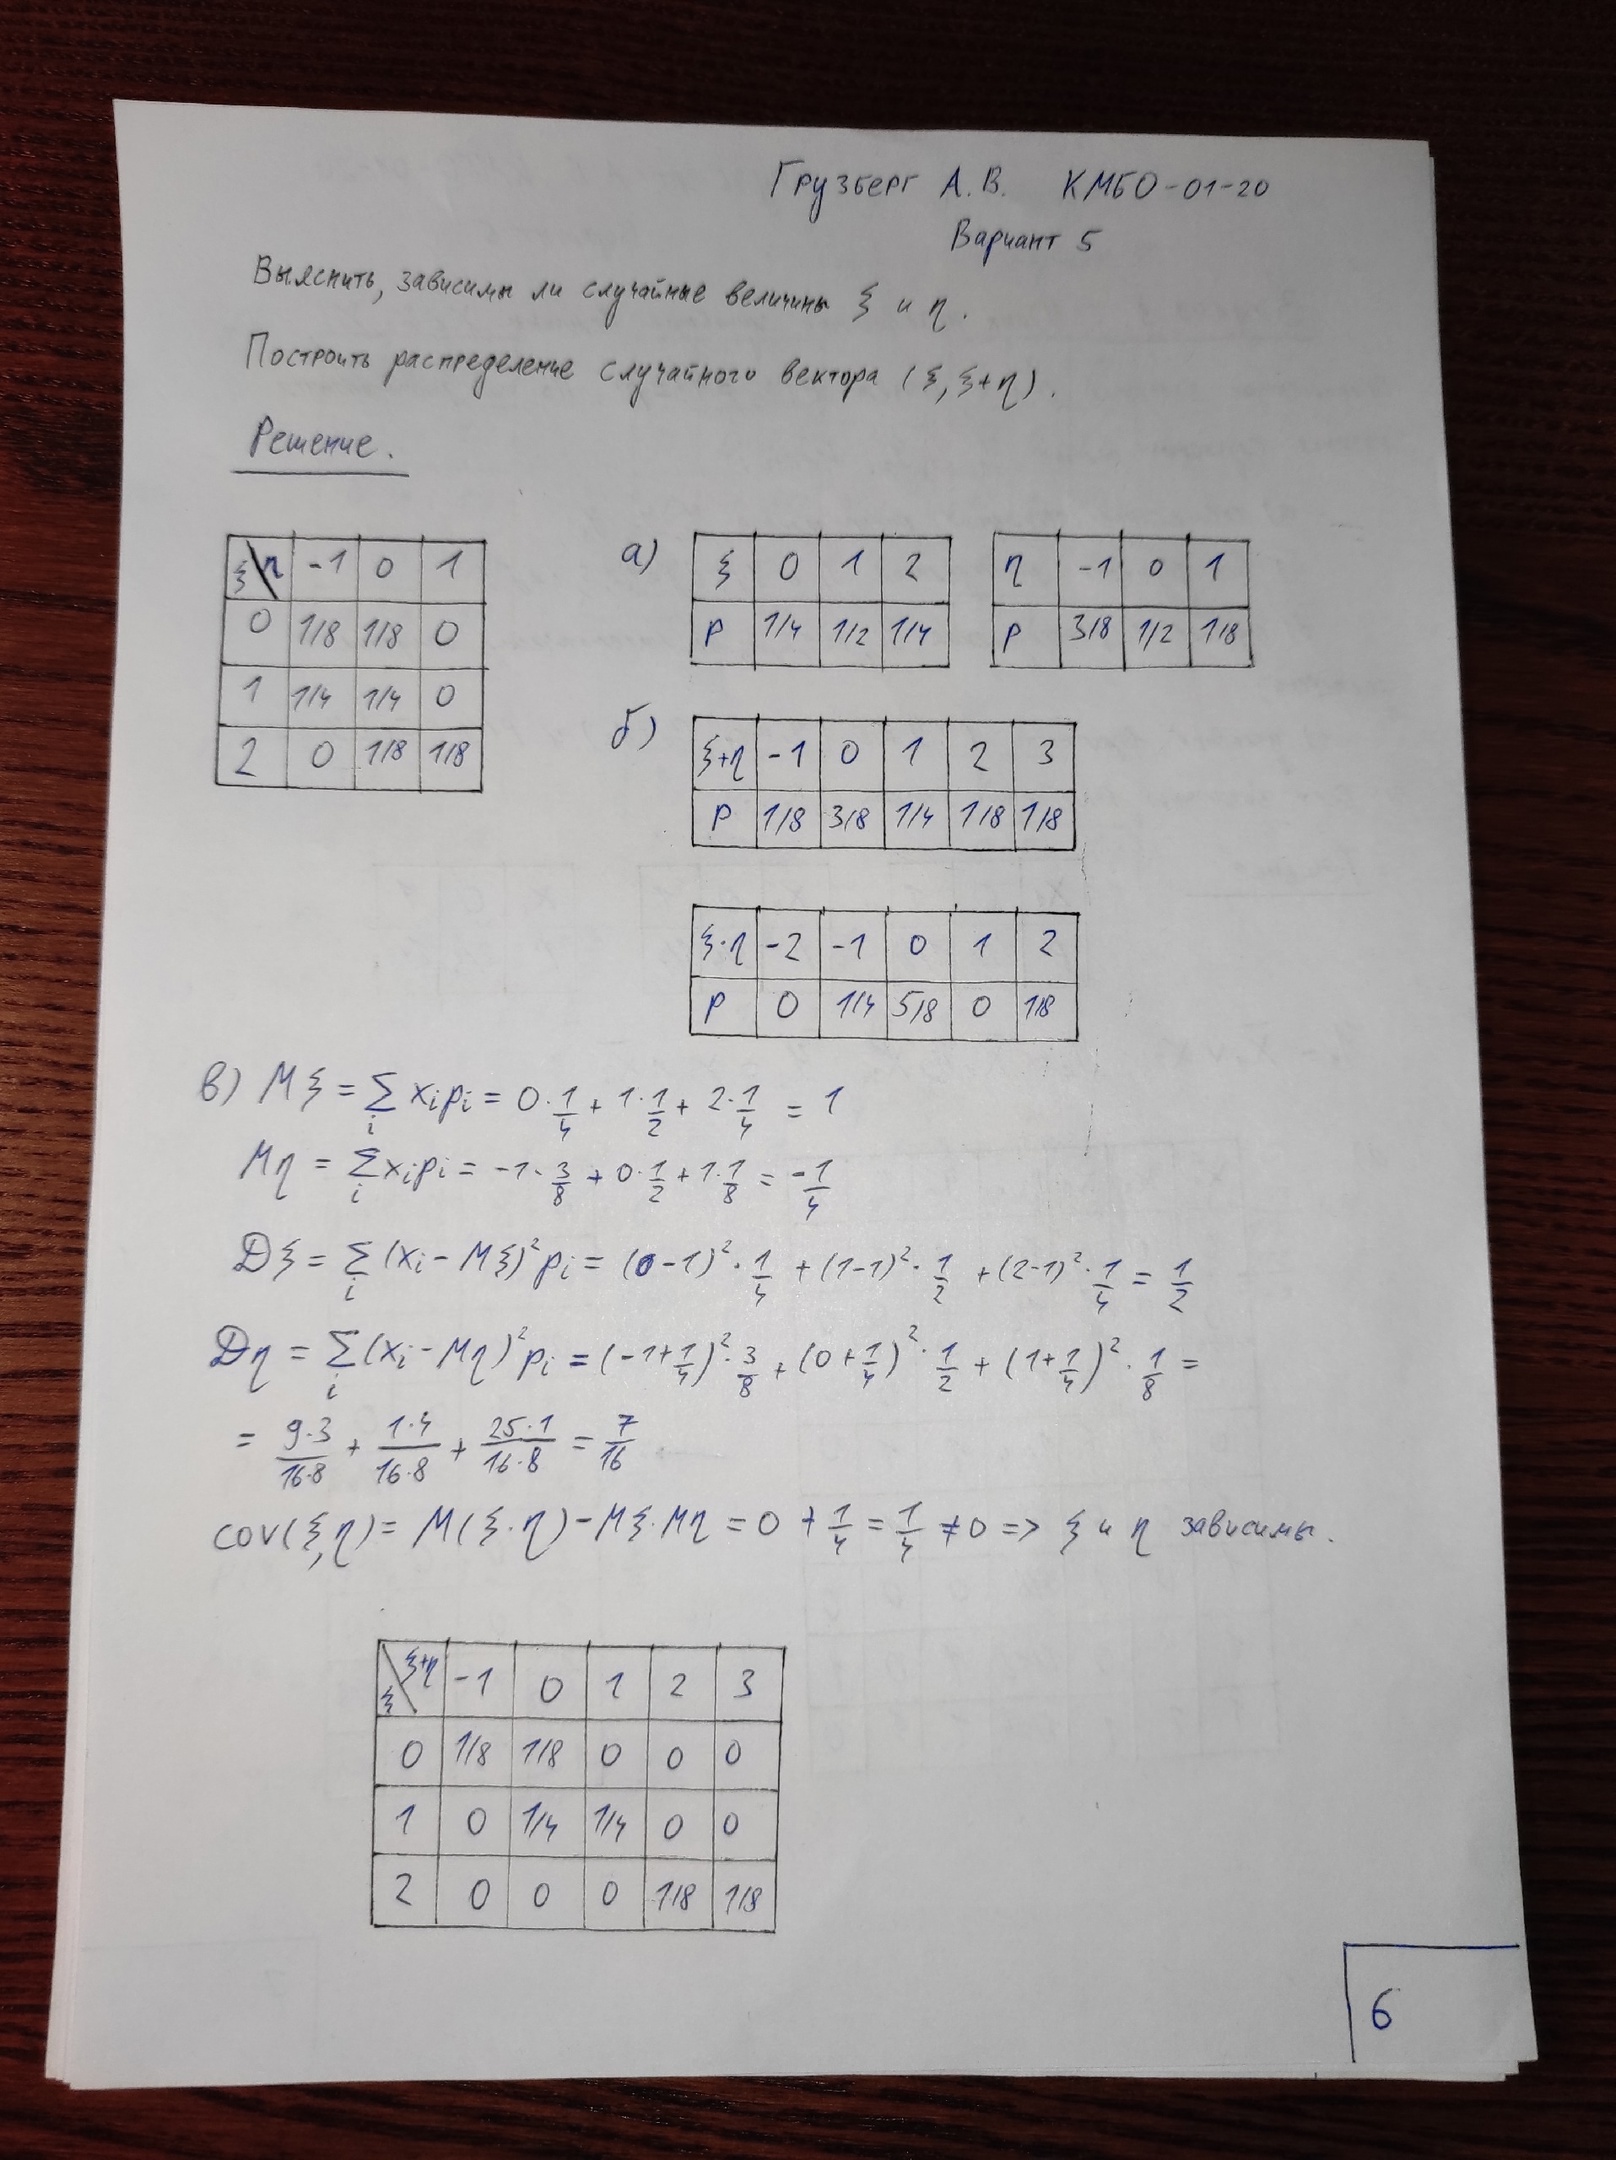 Грузберг А.В. КМБО-01-20
Вариант 5
Выяснить, зависимы ли случайные величины ξ и η.
Построить распределение случайного вектора (ξ, ξ+η).
Решение.
ξ\η -1 0 1
0 1/8 1/8 0
1 1/4 1/4 0
2 0 1/8 1/8
а) ξ 0 1 2
P 1/4 1/2 1/4
η -1 0 1
P 3/8 1/2 1/8
б) ξ+η -1 0 1 2 3
P 1/8 3/8 1/4 1/8 1/8
ξ·η -2 -1 0 1 2
P 0 1/4 5/8 0 1/8
в) Mξ = ∑_i x_i p_i = 0·1/4 + 1·1/2 + 2·1/4 = 1
Mη = ∑_i x_i p_i = -1·3/8 + 0·1/2 + 1·1/8 = -1/4
Dξ = ∑_i (x_i - Mξ)² p_i = (0-1)²·1/4 + (1-1)²·1/2 + (2-1)²·1/4 = 1/2
Dη = ∑_i (x_i - Mη)² p_i = (-1+1/4)²·3/8 + (0+1/4)²·1/2 + (1+1/4)²·1/8 =
= 9·3/16·8 + 1·4/16·8 + 25·1/16·8 = 7/16
cov(ξ,η) = M(ξ·η) - Mξ·Mη = 0 + 1/4 = 1/4 ≠ 0 => ξ и η зависимы.
ξ\ξ+η -1 0 1 2 3
0 1/8 1/8 0 0 0
1 0 1/4 1/4 0 0
2 0 0 0 1/8 1/8
6